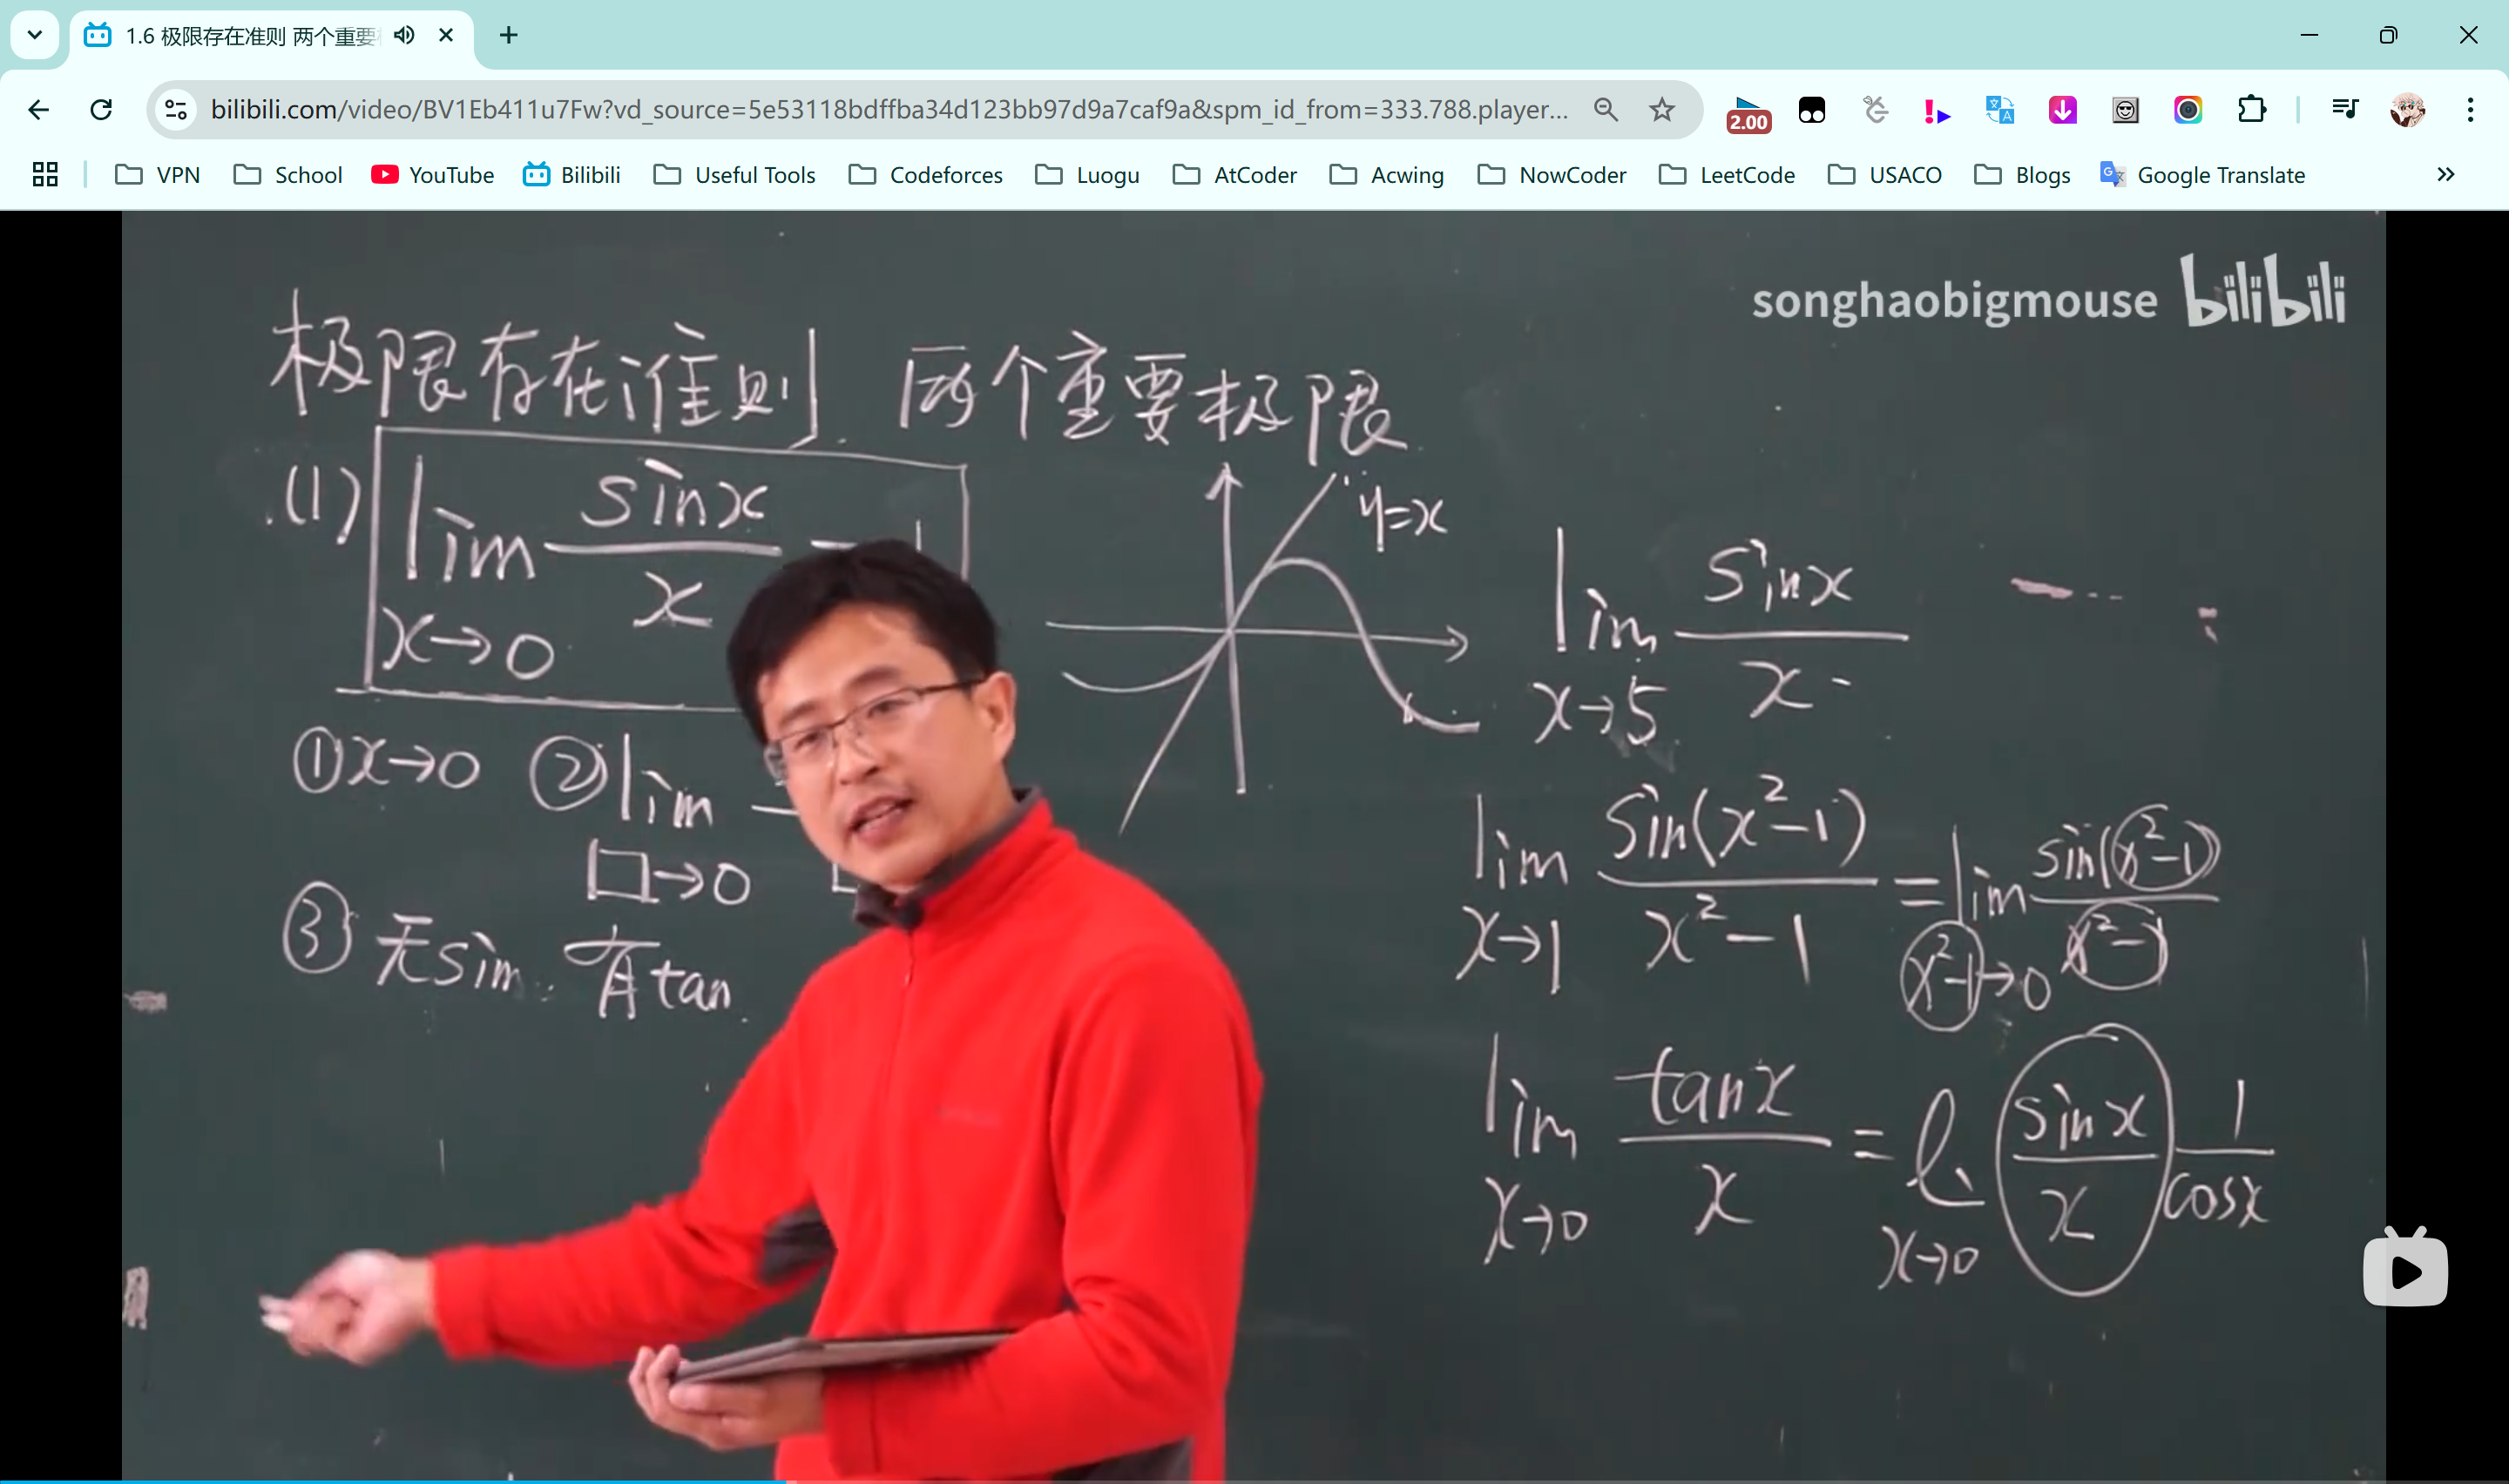 1.6 极限存在准则 两个重要
bilibili.com/video/BV1Eb411u7Fw?vd_source=5e53118bdffba34d123bb97d9a7caf9a&spm_id_from=333.788.player...
2.00
VPN School YouTube Bilibili Useful Tools Codeforces Luogu AtCoder Acwing NowCoder LeetCode USACO Blogs Google Translate
songhaobigmouse bilibili
极限存在准则 两个重要极限
(1) lim x→0 sinx/x = 1
y=x
① x→0 ② lim □→0
③ 无sin. 有tan
lim x→5 sinx/x
lim x→1 sin(x²-1)/x²-1 = lim x²-1→0 sin(x²-1)/x²-1
lim x→0 tanx/x = l x→0 sinx/x 1/cosx